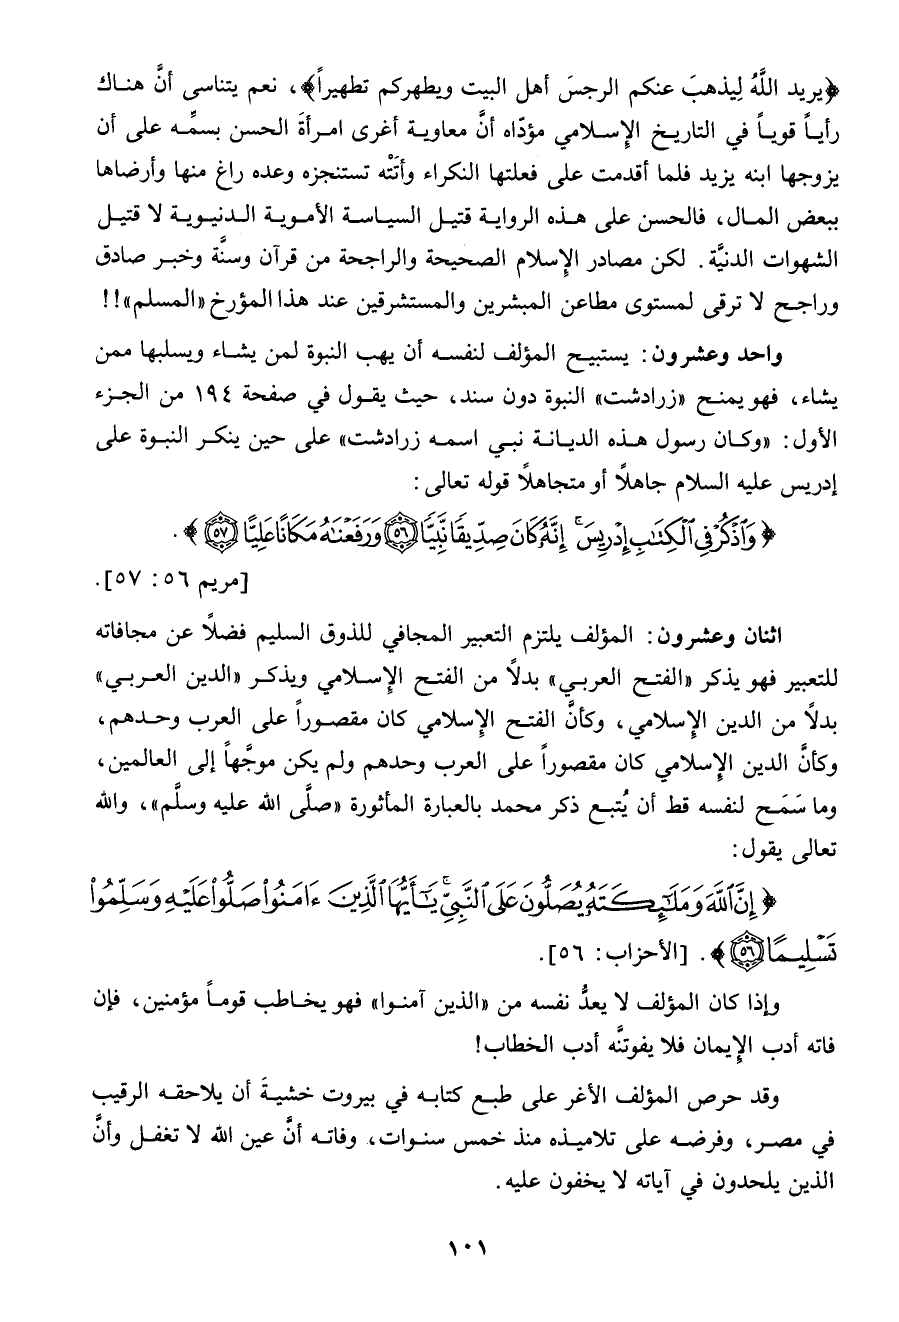 ﴿يريد اللَّهُ لِيذهبَ عنكم الرجسَ أهل البيت ويطهركم تطهيراً﴾، نعم يتناسى أنَّ هناك
رأياً قوياً في التاريخ الإسلامي مؤدّاه أنَّ معاوية أغرى امرأةَ الحسن بسمِّه على أن
يزوجها ابنه يزيد فلما أقدمت على فعلتها النكراء وأتَتْه تستنجزه وعده راغ منها وأرضاها
ببعض المال، فالحسن على هذه الرواية قتيل السياسة الأموية الدنيوية لا قتيل
الشهوات الدنيَّة. لكن مصادر الإسلام الصحيحة والراجحة من قرآن وسنَّة وخبر صادق
وراجح لا ترقى لمستوى مطاعن المبشرين والمستشرقين عند هذا المؤرخ «المسلم»!!
واحد وعشرون: يستبيح المؤلف لنفسه أن يهب النبوة لمن يشاء ويسلبها ممن
يشاء، فهو يمنح «زرادشت» النبوة دون سند، حيث يقول في صفحة ١٩٤ من الجزء
الأول: «وكان رسول هذه الديانة نبي اسمه زرادشت» على حين ينكر النبوة على
إدريس عليه السلام جاهلاً أو متجاهلاً قوله تعالى:
﴿وَٱذْكُرْ فِي ٱلْكِتَٰبِ إِدْرِيسَ ۚ إِنَّهُۥ كَانَ صِدِّيقًا نَّبِيًّا ۝٥٦ وَرَفَعْنَٰهُ مَكَانًا عَلِيًّا ۝٥٧﴾.
[مريم ٥٦: ٥٧].
اثنان وعشرون: المؤلف يلتزم التعبير المجافي للذوق السليم فضلاً عن مجافاته
للتعبير فهو يذكر «الفتح العربي» بدلاً من الفتح الإسلامي ويذكر «الدين العربي»
بدلاً من الدين الإسلامي، وكأنَّ الفتح الإسلامي كان مقصوراً على العرب وحدهم،
وكأنَّ الدين الإسلامي كان مقصوراً على العرب وحدهم ولم يكن موجَّهاً إلى العالمين،
وما سَمَح لنفسه قط أن يُتبع ذكر محمد بالعبارة المأثورة «صلَّى الله عليه وسلَّم»، والله
تعالى يقول:
﴿إِنَّ ٱللَّهَ وَمَلَٰٓئِكَتَهُۥ يُصَلُّونَ عَلَى ٱلنَّبِيِّ ۚ يَٰٓأَيُّهَا ٱلَّذِينَ ءَامَنُوا۟ صَلُّوا۟ عَلَيْهِ وَسَلِّمُوا۟
تَسْلِيمًا ۝٥٦﴾. [الأحزاب: ٥٦].
وإذا كان المؤلف لا يعدُّ نفسه من «الذين آمنوا» فهو يخاطب قوماً مؤمنين، فإن
فاته أدب الإيمان فلا يفوتنَّه أدب الخطاب!
وقد حرص المؤلف الأغر على طبع كتابه في بيروت خشيةَ أن يلاحقه الرقيب
في مصر، وفرضه على تلاميذه منذ خمس سنوات، وفاته أنَّ عين الله لا تغفل وأنَّ
الذين يلحدون في آياته لا يخفون عليه.
١٠١